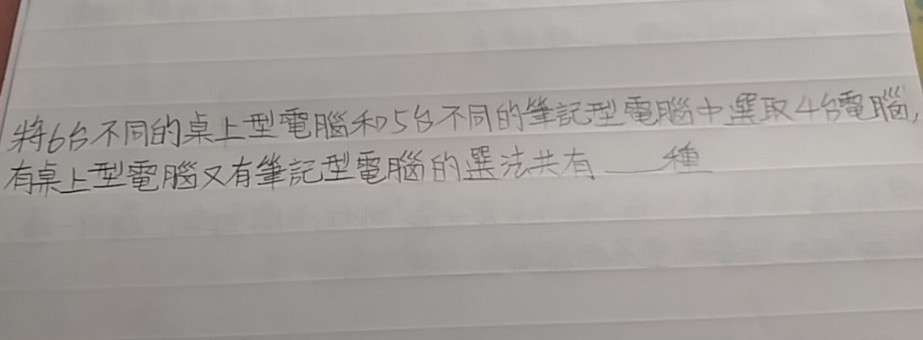 將6台不同的桌上型電腦和5台不同的筆記型電腦中選取4台電腦,
有桌上型電腦又有筆記型電腦的選法共有___種